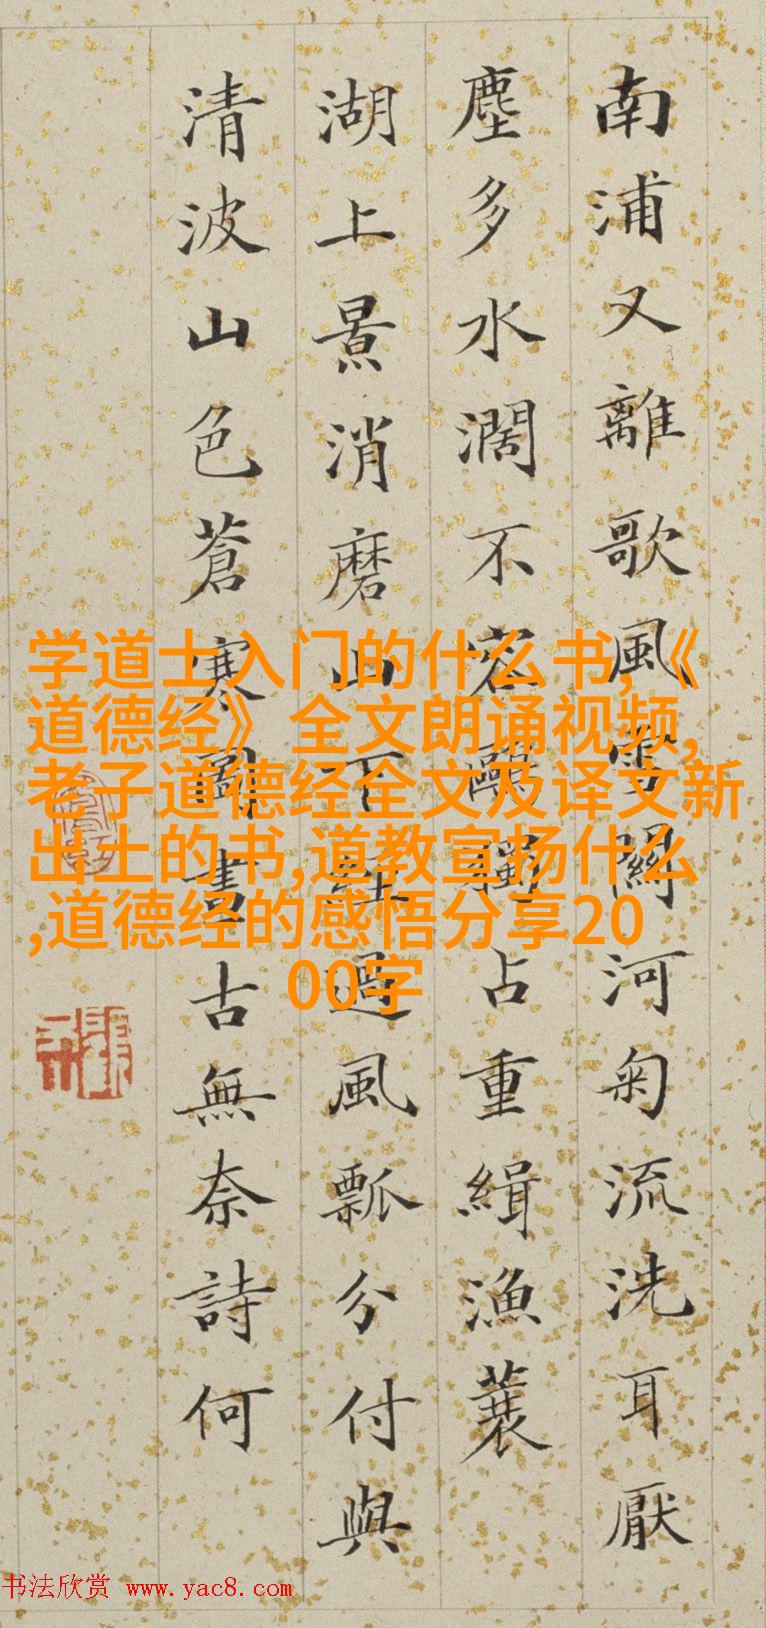 南浦又離歌風雪關河匊流洗耳厭
塵多水濶不容鷗獨占重緝漁蓑
湖上景消磨山下過風瓢分付與
清波山色蒼寒圖畫古無奈詩何
学道士入门的什么书,《
道德经》全文朗诵视频,
老子道德经全文及译文新
出土的书,道教宣扬什么
,道德经的感悟分享20
00字
书法欣赏 www.yac8.com